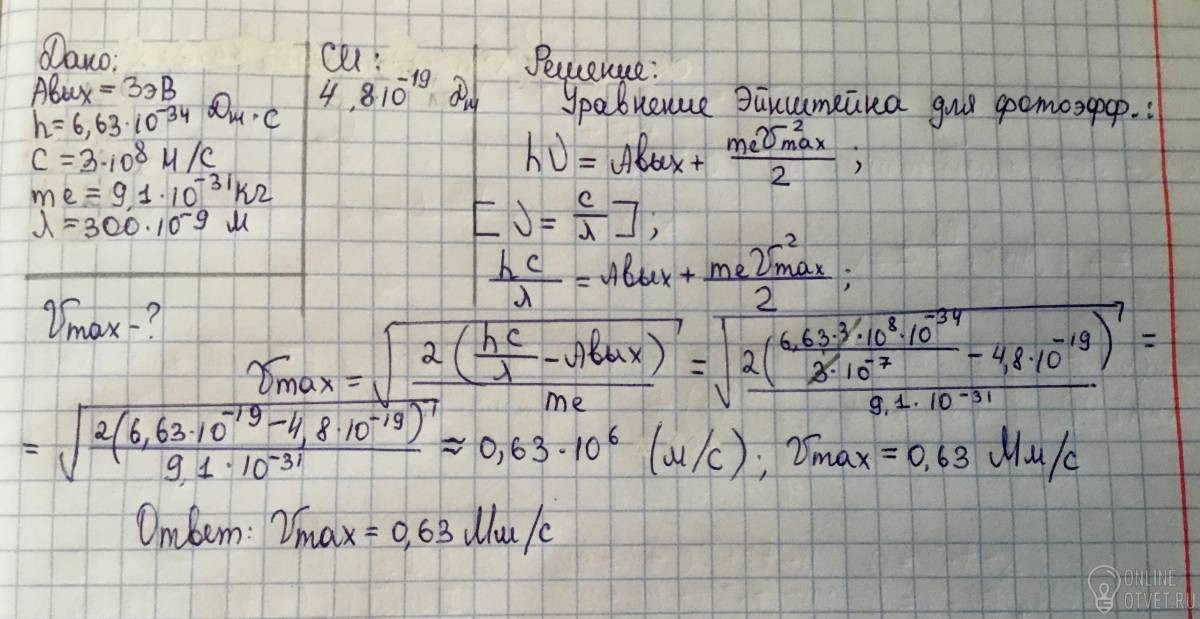 Дано:
Aвых = 3эВ
h = 6,63·10⁻³⁴ Дж·с
c = 3·10⁸ м/с
me = 9,1·10⁻³¹ кг
λ = 300·10⁻⁹ м
Vmax - ?
СИ:
4,8 10⁻¹⁹ Дж
Решение:
Уравнение Эйнштейна для фотоэфф.:
hν = Aвых + meVmax²/2 ;
[ν = c/λ];
hc/λ = Aвых + meVmax²/2 ;
Vmax = √(2(hc/λ - Aвых)/me) = √(2(6,63·3·10⁸·10⁻³⁴/3·10⁻⁷ - 4,8·10⁻¹⁹)/9,1·10⁻³¹) =
= √(2(6,63·10⁻¹⁹ - 4,8·10⁻¹⁹)/9,1·10⁻³¹) ≈ 0,63·10⁶ (м/с); Vmax = 0,63 Мм/с
Ответ: Vmax = 0,63 Мм/с
ONLINE
OTVET.RU